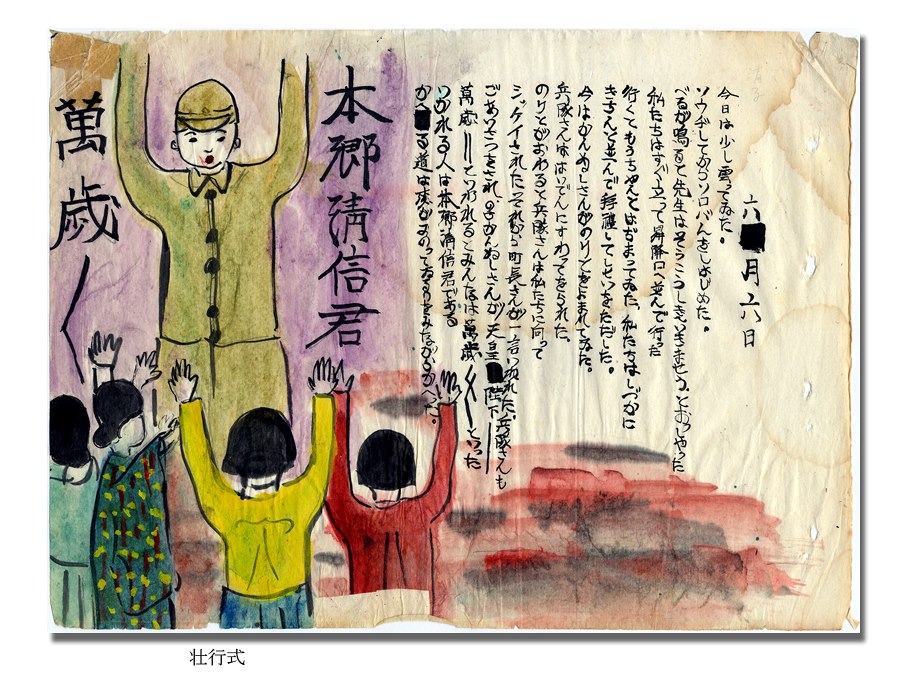 六月六日
今日は少し曇ってゐた。
ソウヂしてからソロバんをしはじめた。
べるが鳴ると先生はそうこうしきにいきませう、とおっしゃった
私たちはすぐ立って昇降口へ並んで行った
行くともうちゃんとはじまってゐた。私たちはしづかに
きちんと並んで拝禮してしせいをただした。
今はかんぬしさんがのりとをよまれてゐた。
兵隊さんははいでんにすわってをられた。
のりとがおわると兵隊さんは私たちに向って
シツケイされた。それから町長さんが一言いはれた。兵隊さんも
ごあいさつをされ、かんぬしさんが天皇陛下
萬歳――といわれるとみんなは萬歳〱といった
いかれる人は本郷清信君である
かへる道は
本郷清信君
萬歳〱
壮行式